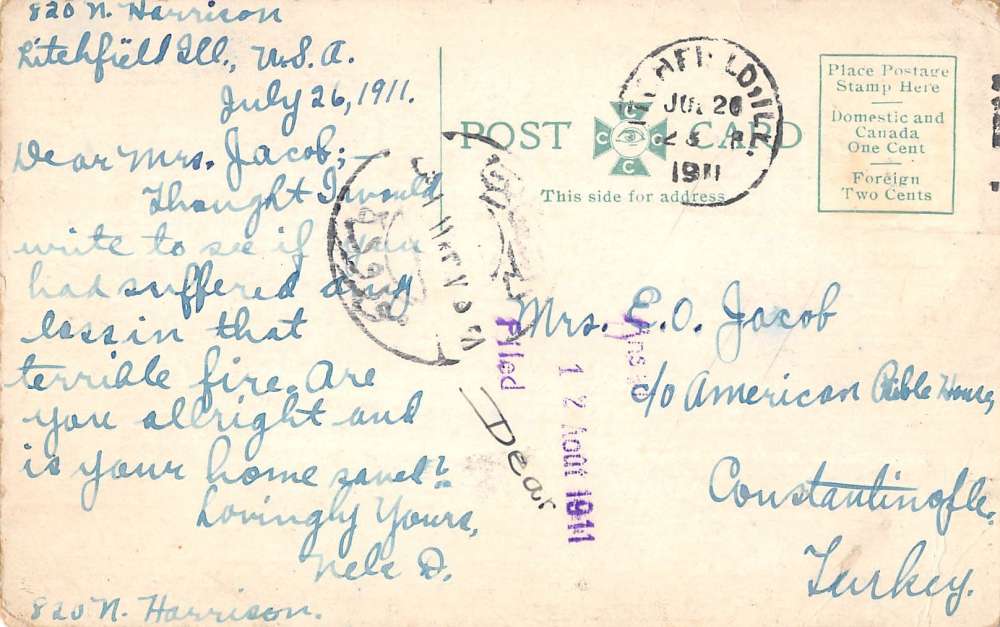 820 N. Harrison
Litchfield Ill., U.S.A.
July 26, 1911.
Dear Mrs. Jacob;—
Thought I would
write to see if you
had suffered any
loss in that
terrible fire. Are
you allright and
is your home saved?
Lovingly Yours,
Nele D.
820 N. Harrison.
POST CARD
C C C C
This side for address
LITCHFIELD, ILL.
JUL 26
1911
Place Postage
Stamp Here
Domestic and
Canada
One Cent
Foreign
Two Cents
Mrs. E.O. Jacob
c/o American Bible House,
Constantinople,
Turkey.
Filed
12 AOUT 1911
Ans'd
Dear